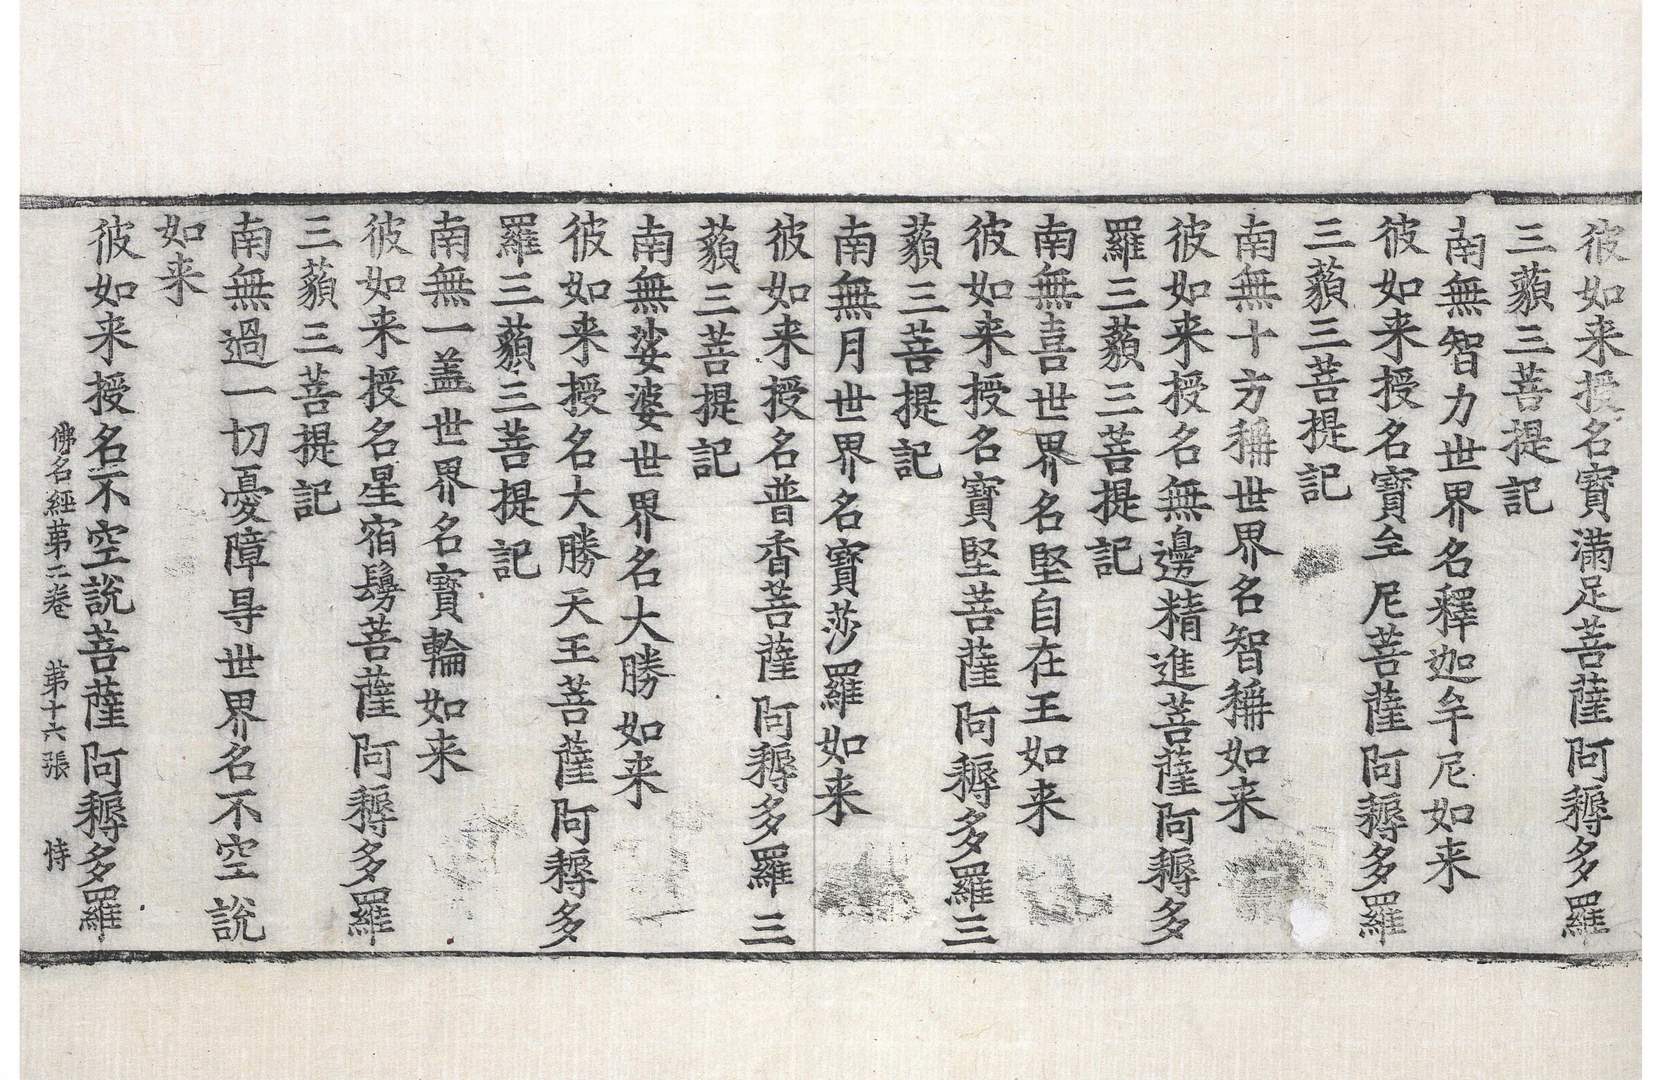 彼如来授名寶滿足菩薩阿耨多羅
三藐三菩提記
南無智力世界名釋迦牟尼如来
彼如来授名寶牟尼菩薩阿耨多羅
三藐三菩提記
南無十方稱世界名智稱如来
彼如来授名無邊精進菩薩阿耨多
羅三藐三菩提記
南無喜世界名堅自在王如来
彼如来授名寶堅菩薩阿耨多羅三
藐三菩提記
南無月世界名寶莎羅如来
彼如来授名普香菩薩阿耨多羅三
藐三菩提記
南無娑婆世界名大勝如来
彼如来授名大勝天王菩薩阿耨多
羅三藐三菩提記
南無一盖世界名寶輪如来
彼如来授名星宿鬘菩薩阿耨多羅
三藐三菩提記
南無過一切憂障㝵世界名不空說
如来
彼如来授名不空說菩薩阿耨多羅
佛名經苐二卷 苐十六張 恃